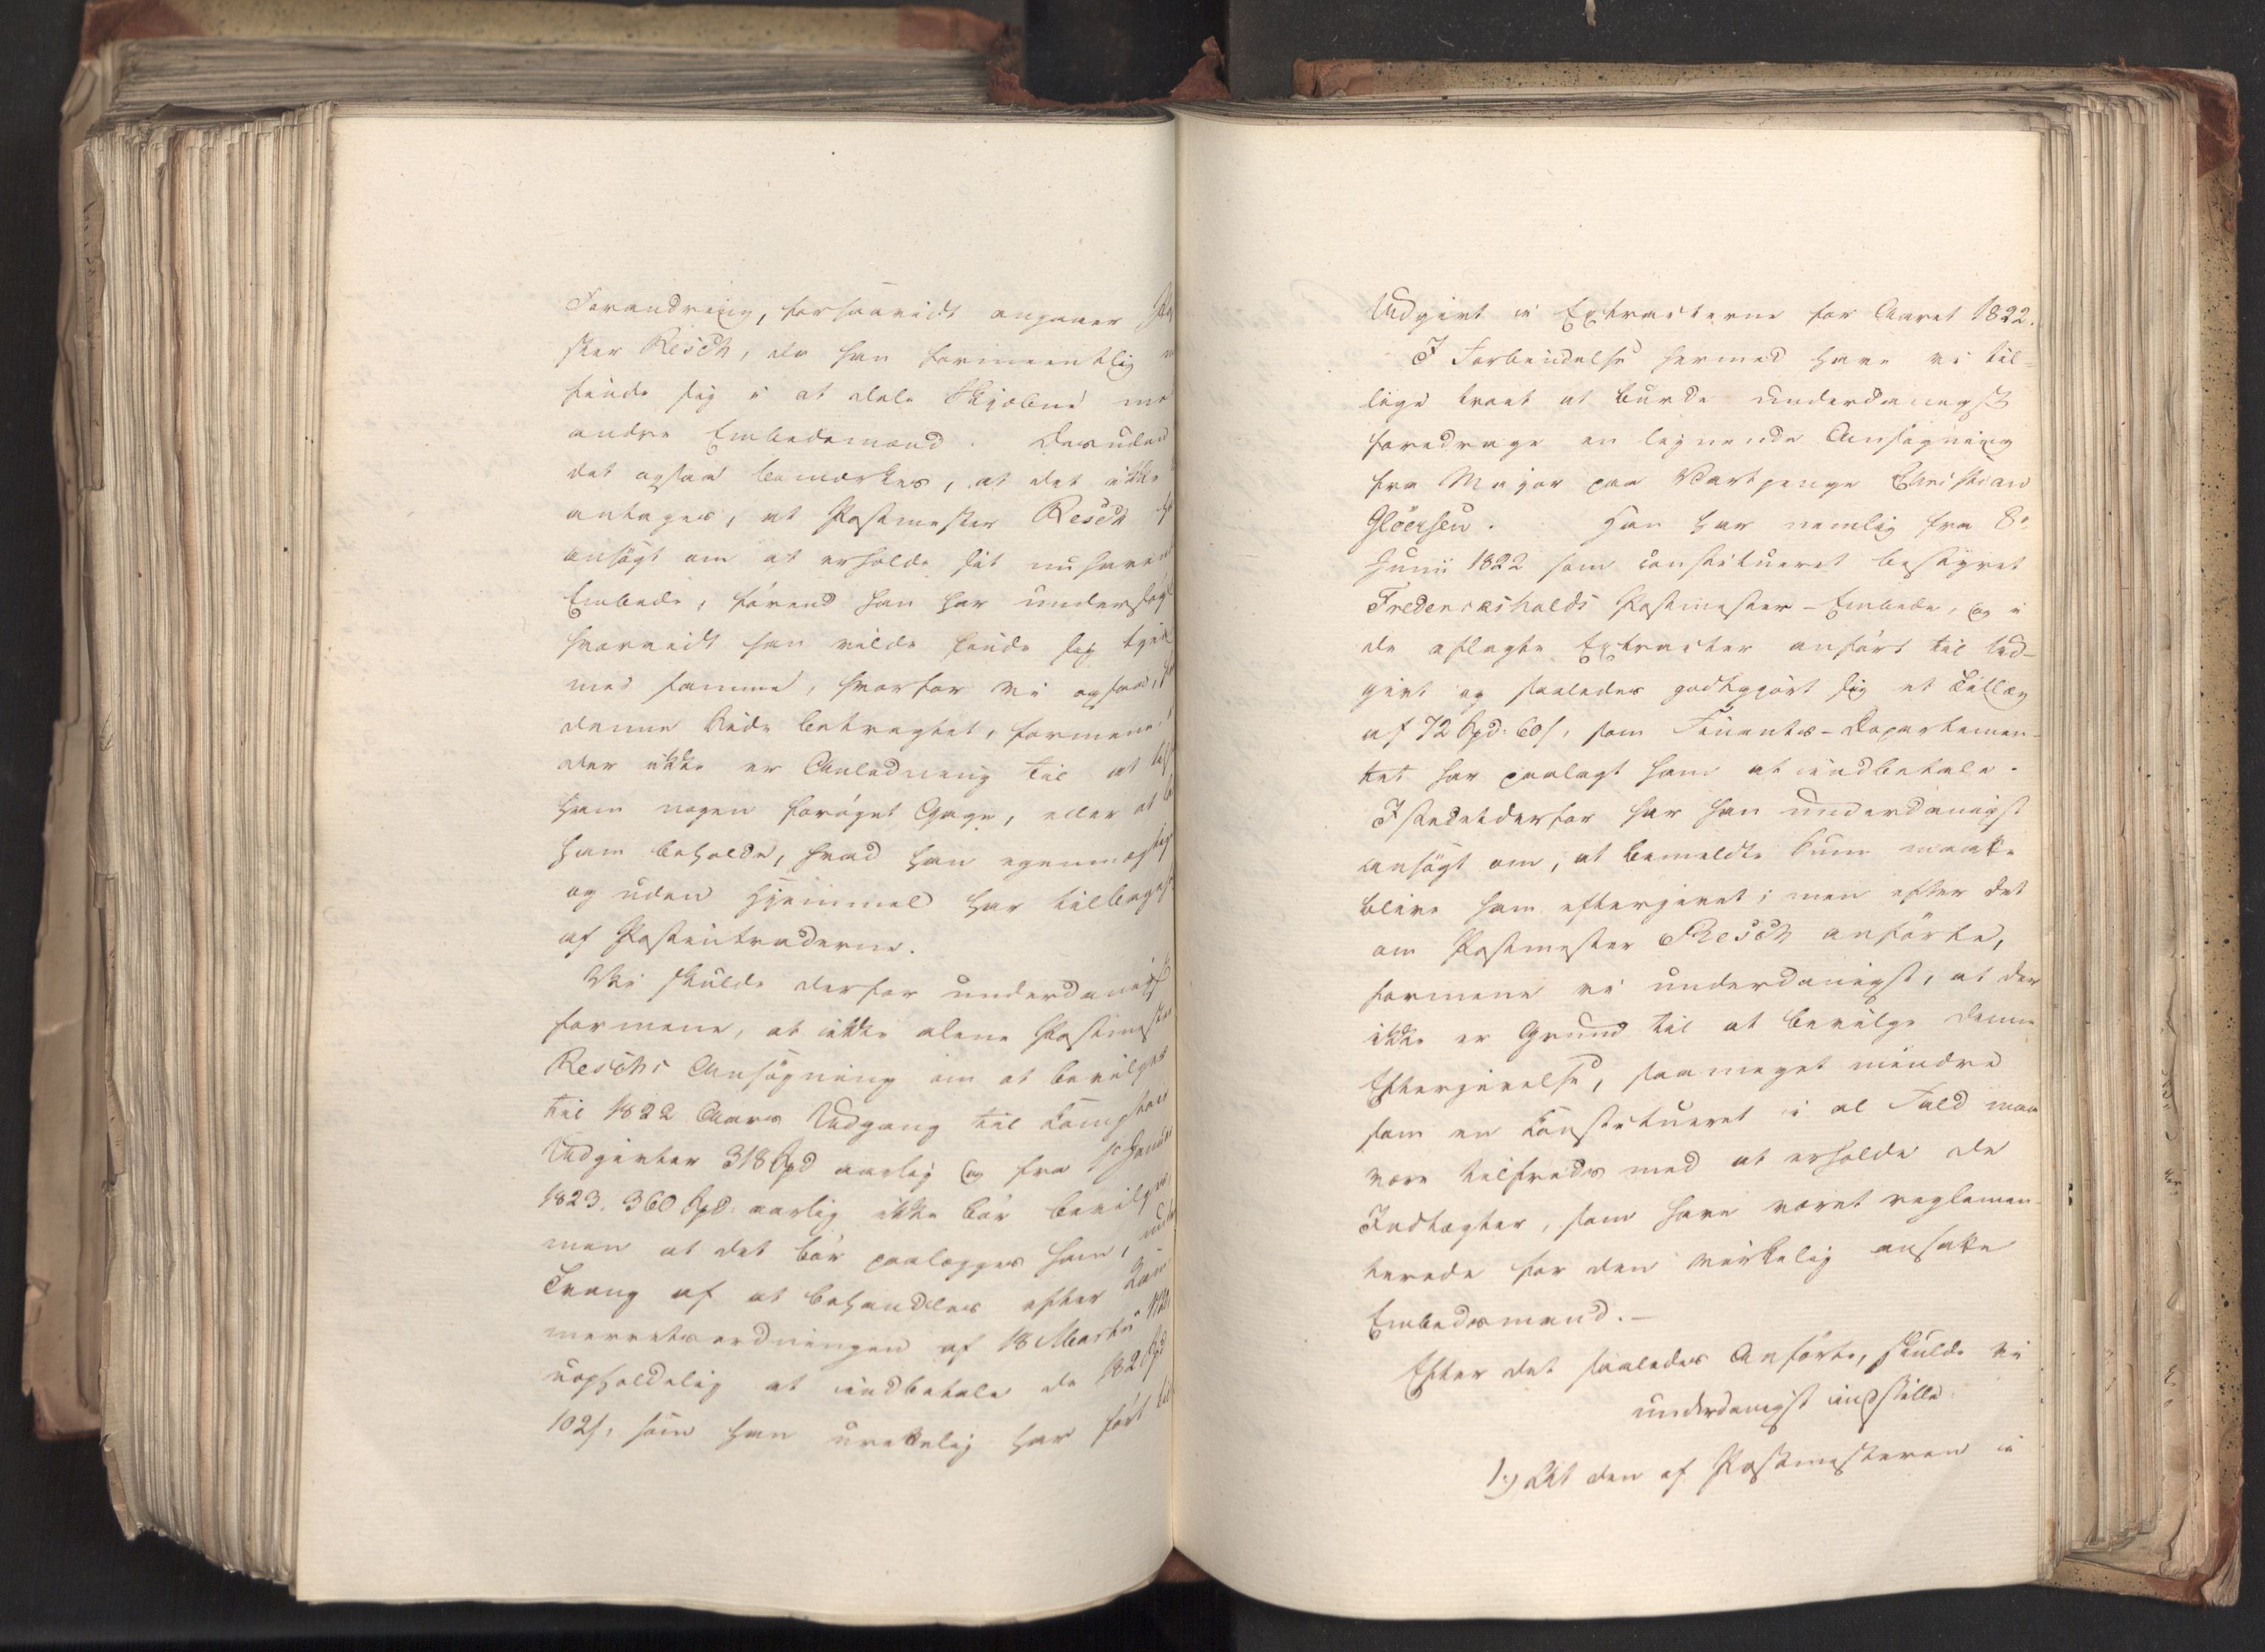 Forandring, forsaavidt angaaer
ster Resch, da han formeentlig
finde sig i at dele Skjæbne
andre Embedsmænd. Desuden
det ogsaa bemærkes, at det ikke
antages, at Postmester Resch
ansøgt om at erholde sit
Embede, førend han har undersøgt
hvorvidt han vilde finde sig
med samme, hvorfor vi ogsaa,
denne Side betragtet, formene
der ikke er Anledning til at
ham nogen forøget Gage, eller at
ham beholde, hvad han egenmægtig
og uden Hjemmel har
af Postintraderne.
Vi skulde derfor underdanigst
formene, at ikke alene Postmester
Reschs Ansøgning om at bevilges
til 1822 Aars Udgang til
Udgivter 318 Spd aarlig og fra 1ste Januar
1823. 360 Spd: aarlig ikke bør bevilges
men at det bør paalægges ham, under
Tvang af at behandles efter
merretsordningen af 18 Martii
uopholdelig at indbetale de 182 Spd
102 s, som han urettelig har ført til
Udgivt i Extracterne for Aaret 1822.
I Forbindelse hermed have vi til-
lige troet at burde underdanigst
foredrage en lignende Ansøgning
fra Major paa Vartpenge Christian
Glöersen. Han har nemlig fra 8de
Junii 1822 som constitueret bestyret
Frederikshalds Postmester-Embede, og i
de aflagte Extracter anført til Ud-
givt og saaledes godtgjort sig et Tillæg
af 72 Spd: 60 s, som Finants-Departemen-
tet har paalagt ham at indbetale.
Istedetderfor har han underdanigst
ansøgt om, at bemeldte Sum maatte
blive ham eftergivet; men efter det
om Postmester Resch anførte,
formene vi underdanigst, at der
ikke er Grund til at bevilge denne
Eftergivelse, saameget mindre
som en Constitueret i al Fald maa
være tilfreds med at erholde de
Indtægter, som have været reglemen-
terede for den virkelig ansatte
Embedsmand.—
Efter det saaledes Anførte, skulde vi
underdanigst indstille
1.) At den af Postmesteren i